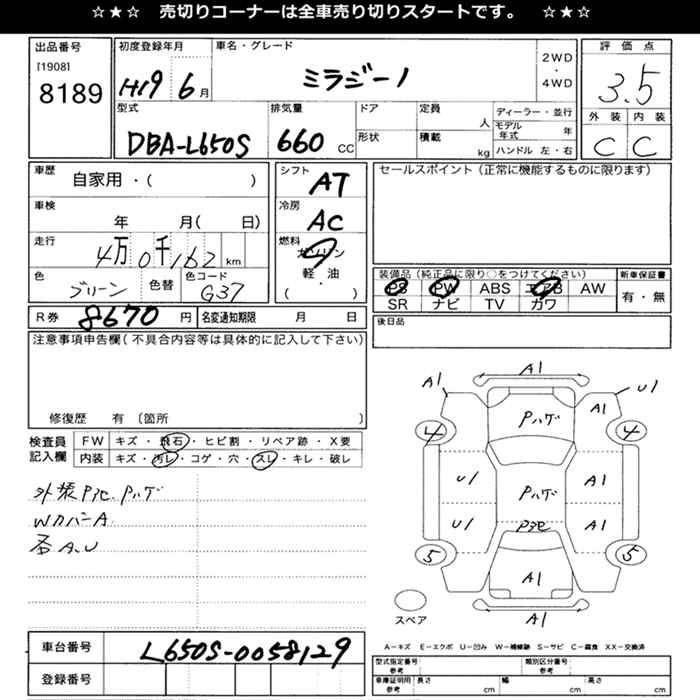 ☆★☆ 売切りコーナーは全車売り切りスタートです。 ☆★☆
出品番号 初度登録年月 車名・グレード 2WD・4WD 評価点
[1908] 8189 H19 6月 ミラジーノ 3.5
型式 排気量 ドア 定員 人 ディーラー・並行 外装 内装
DBA-L650S 660 CC 形状 積載 kg モデル年式 年 ハンドル 左・右 C C
車歴 自家用・( ) シフト AT セールスポイント(正常に機能するものに限ります)
車検 年 月( 日) 冷房 AC
走行 4万0千162 km 燃料 ガソリン
軽・油
( )
色 グリーン 色替 色コード G37
装備品(純正品に限り○をつけてください) 新車保証書
PS PW ABS エアB AW 有・無
SR ナビ TV カワ
R券 8670 円 名変通知期限 月 日 後日品
注意事項申告欄(不具合内容等は具体的に記入して下さい)
修復歴 有 [箇所 ]
検査員記入欄 FW キズ・飛石・ヒビ割・リペア跡・X要
内装 キズ・汚レ・コゲ・穴・スレ・キレ・破レ
外装P池 Pハゲ
WカバーA
各A、U
A1
A1 U1
Pハゲ A1
4 4
U1 Pハゲ A1
U1 P池 A1
5 5
A1
スペア
A1
A-キズ E-エクボ U-凹み W-補修跡 S-サビ C-腐食 XX-交換済
車台番号 L650S-0058129
登録番号
型式指定番号 参考 類別区分番号 参考
車庫証明用 参考 長さ cm 幅 cm 高さ cm